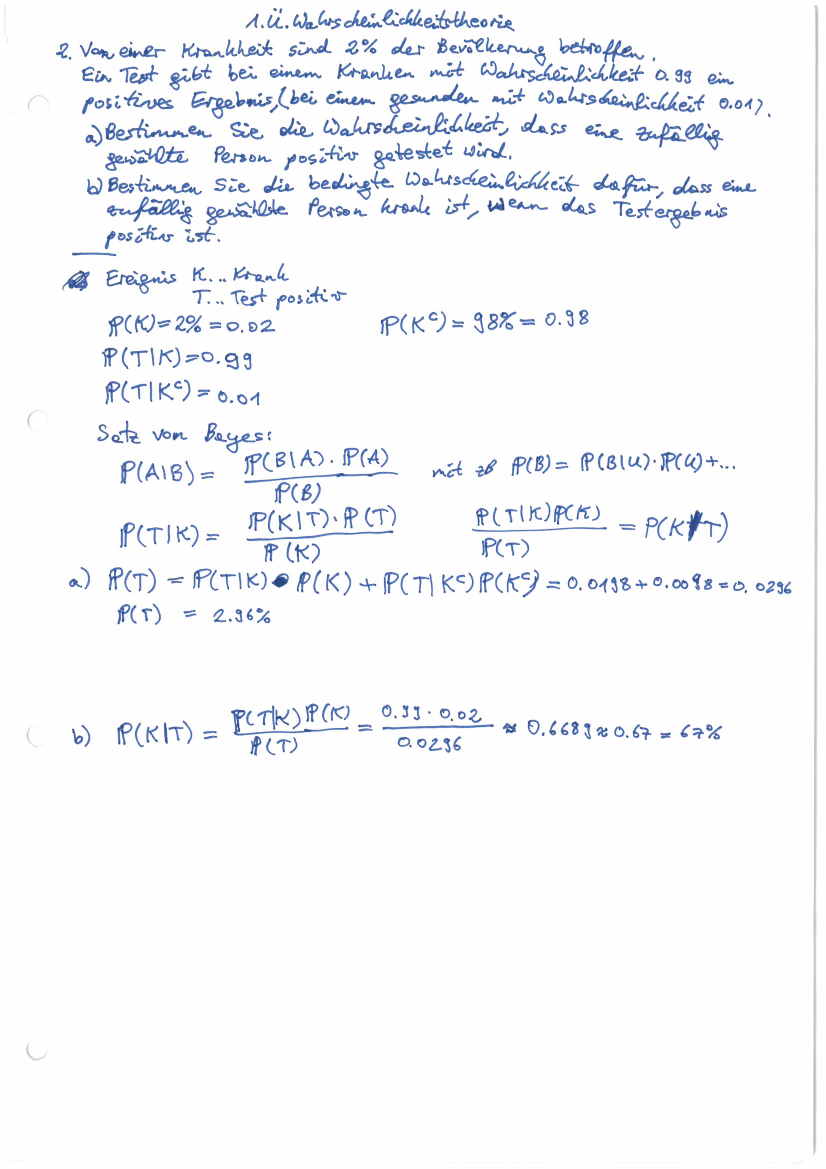 1. Ü. Wahrscheinlichkeitstheorie
2. Von einer Krankheit sind 2% der Bevölkerung betroffen.
Ein Test gibt bei einem Kranken mit Wahrscheinlichkeit 0.99 ein
positives Ergebnis, (bei einem gesunden mit Wahrscheinlichkeit 0.01).
a) Bestimmen Sie die Wahrscheinlichkeit, dass eine zufällig
gewählte Person positiv getestet wird.
b) Bestimmen Sie die bedingte Wahrscheinlichkeit dafür, dass eine
zufällig gewählte Person krank ist, wenn das Testergebnis
positiv ist.
Ereignis K... Krank
T... Test positiv
ℙ(K) = 2% = 0.02 ℙ(Kᶜ) = 98% = 0.98
ℙ(T|K) = 0.99
ℙ(T|Kᶜ) = 0.01
Satz von Bayes:
ℙ(A|B) = ℙ(B|A) · ℙ(A) / ℙ(B) mit zB ℙ(B) = ℙ(B|U) · ℙ(U) + ...
ℙ(T|K) = ℙ(K|T) · ℙ(T) / ℙ(K) ℙ(T|K)ℙ(K) / ℙ(T) = ℙ(K|T)
a) ℙ(T) = ℙ(T|K) · ℙ(K) + ℙ(T|Kᶜ) ℙ(Kᶜ) = 0.0198 + 0.0098 = 0.0296
ℙ(T) = 2.96%
b) ℙ(K|T) = ℙ(T|K) ℙ(K) / ℙ(T) = 0.99 · 0.02 / 0.0296 ≈ 0.6689 ≈ 0.67 = 67%